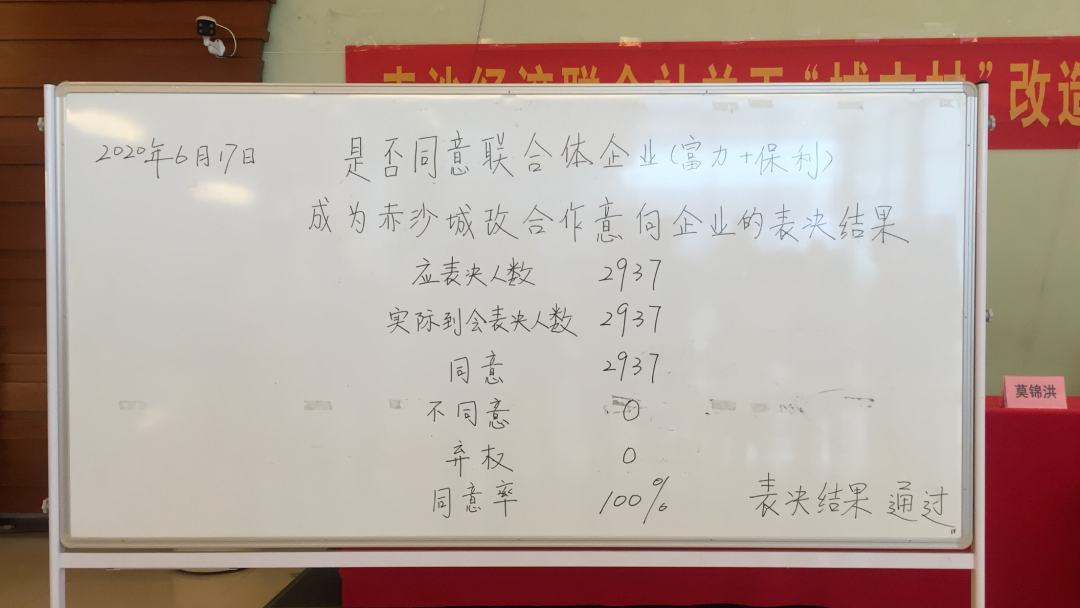 赤沙经济联合社关于“城中村”改造
2020年6月17日 是否同意联合体企业(富力+保利)
成为赤沙城改合作意向企业的表决结果
应表决人数 2937
实际到会表决人数 2937
同意 2937
不同意 0
弃权 0
同意率 100% 表决结果 通过
莫锦洪